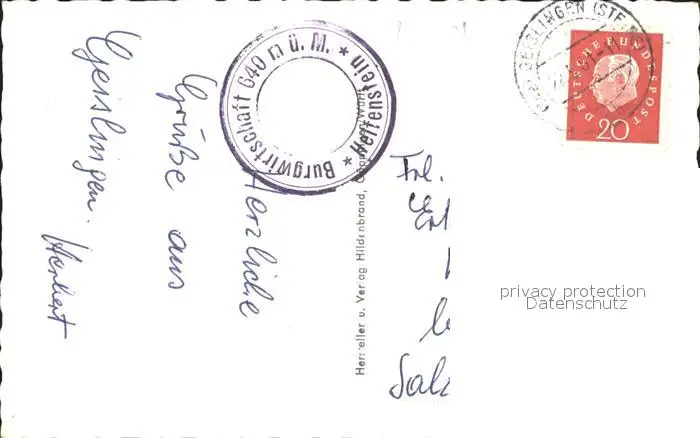 Herzliche
Grüße aus
Geislingen.
Herbert
Burgwirtschaft 640 m ü. M. ★ Helfenstein ★
Hersteller u. Verlag Hildenbrand,
GEISLINGEN (STEIGE)
DEUTSCHE BUNDESPOST
20
Frl.
privacy protection
Datenschutz